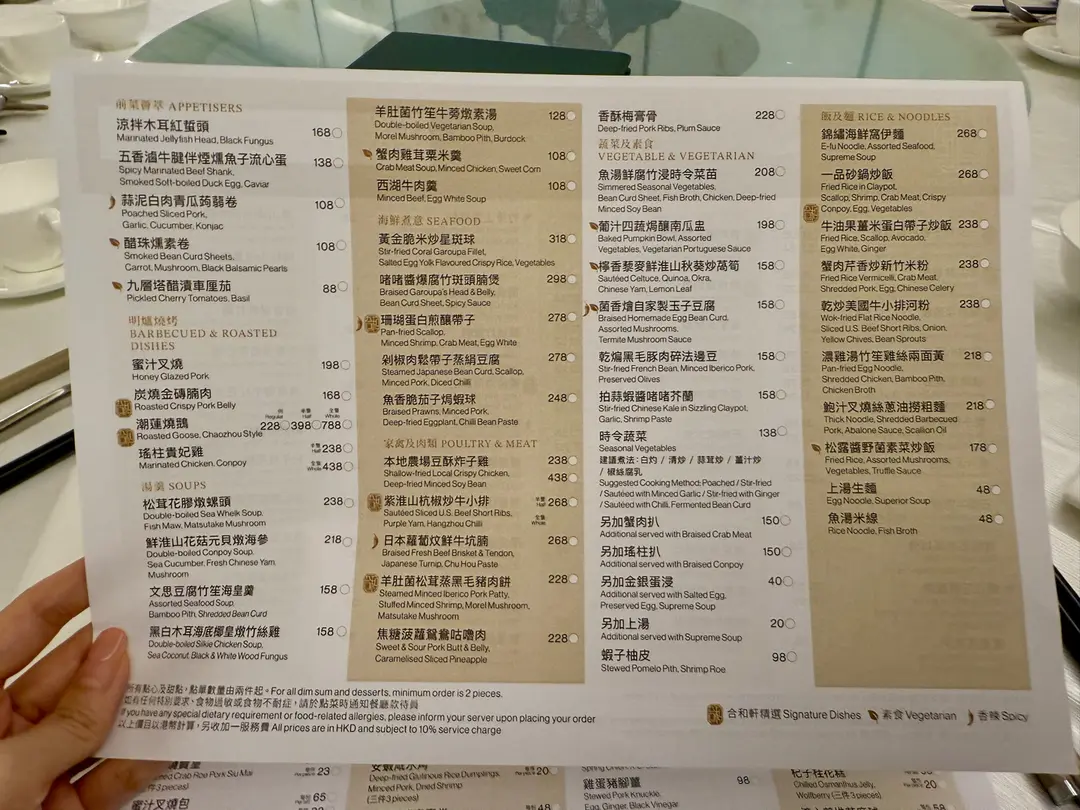 前菜薈萃 APPETISERS
涼拌木耳紅蜇頭 168
Marinated Jellyfish Head, Black Fungus
五香滷牛腱伴煙燻魚子流心蛋 138
Spicy Marinated Beef Shank,
Smoked Soft-boiled Duck Egg, Caviar
蒜泥白肉青瓜蒟蒻卷 108
Poached Sliced Pork,
Garlic, Cucumber, Konjac
醋珠燻素卷 108
Smoked Bean Curd Sheets,
Carrot, Mushroom, Black Balsamic Pearls
九層塔醋漬車厘茄 88
Pickled Cherry Tomatoes, Basil
明爐燒烤
BARBECUED & ROASTED
DISHES
蜜汁叉燒 198
Honey Glazed Pork
炭燒金磚腩肉 168
Roasted Crispy Pork Belly
例 Regular 半隻 Half 全隻 Whole
潮蓮燒鵝 228 398 788
Roasted Goose, Chaozhou Style
瑤柱貴妃雞 半隻 Half 238
Marinated Chicken, Conpoy 全隻 Whole 438
湯羹 SOUPS
松茸花膠燉螺頭 238
Double-boiled Sea Whelk Soup,
Fish Maw, Matsutake Mushroom
鮮淮山花菇元貝燉海參 218
Double-boiled Conpoy Soup,
Sea Cucumber, Fresh Chinese Yam,
Mushroom
文思豆腐竹笙海皇羹 158
Assorted Seafood Soup,
Bamboo Pith, Shredded Bean Curd
黑白木耳海底椰皇燉竹絲雞 158
Double-boiled Silkie Chicken Soup,
Sea Coconut, Black & White Wood Fungus
羊肚菌竹笙牛蒡燉素湯 128
Double-boiled Vegetarian Soup,
Morel Mushroom, Bamboo Pith, Burdock
蟹肉雞茸粟米羹 108
Crab Meat Soup, Minced Chicken, Sweet Corn
西湖牛肉羹 108
Minced Beef, Egg White Soup
海鮮煮意 SEAFOOD
黃金脆米炒星斑球 318
Stir-fried Coral Garoupa Fillet,
Salted Egg Yolk Flavoured Crispy Rice, Vegetables
啫啫醬爆腐竹斑頭腩煲 298
Braised Garoupa's Head & Belly,
Bean Curd Sheet, Spicy Sauce
珊瑚蛋白煎釀帶子 278
Pan-fried Scallop,
Minced Shrimp, Crab Meat, Egg White
剁椒肉鬆帶子蒸絹豆腐 278
Steamed Japanese Bean Curd, Scallop,
Minced Pork, Diced Chilli
魚香脆茄子焗蝦球 248
Braised Prawns, Minced Pork,
Deep-fried Eggplant, Chilli Bean Paste
家禽及肉類 POULTRY & MEAT
本地農場豆酥炸子雞 238
Shallow-fried Local Crispy Chicken,
Deep-fried Minced Soy Bean 438
紫淮山杭椒炒牛小排 半隻 Half 268
Sautéed Sliced U.S. Beef Short Ribs,
Purple Yam, Hangzhou Chilli 全隻 Whole
日本蘿蔔炆鮮牛坑腩 268
Braised Fresh Beef Brisket & Tendon,
Japanese Turnip, Chu Hou Paste
羊肚菌松茸蒸黑毛豬肉餅 228
Steamed Minced Iberico Pork Patty,
Stuffed Minced Shrimp, Morel Mushroom,
Matsutake Mushroom
焦糖菠蘿鴛鴦咕嚕肉 228
Sweet & Sour Pork Butt & Belly,
Caramelised Sliced Pineapple
香酥梅膏骨 228
Deep-fried Pork Ribs, Plum Sauce
蔬菜及素食
VEGETABLE & VEGETARIAN
魚湯鮮腐竹浸時令菜苗 208
Simmered Seasonal Vegetables,
Bean Curd Sheet, Fish Broth, Chicken, Deep-fried
Minced Soy Bean
葡汁四蔬焗釀南瓜盅 198
Baked Pumpkin Bowl, Assorted
Vegetables, Vegetarian Portuguese Sauce
檸香藜麥鮮淮山秋葵炒萵筍 158
Sautéed Celtuce, Quinoa, Okra,
Chinese Yam, Lemon Leaf
菌香燴自家製玉子豆腐 158
Braised Homemade Egg Bean Curd,
Assorted Mushrooms,
Termite Mushroom Sauce
乾煸黑毛豚肉碎法邊豆 158
Stir-fried French Bean, Minced Iberico Pork,
Preserved Olives
拍蒜蝦醬啫啫芥蘭 158
Stir-fried Chinese Kale in Sizzling Claypot,
Garlic, Shrimp Paste
時令蔬菜 138
Seasonal Vegetables
建議煮法：白灼 / 清炒 / 蒜茸炒 / 薑汁炒
/ 椒絲腐乳
Suggested Cooking Method: Poached / Stir-fried
/ Sautéed with Minced Garlic / Stir-fried with Ginger
/ Sautéed with Chilli, Fermented Bean Curd
另加蟹肉扒 150
Additional served with Braised Crab Meat
另加瑤柱扒 150
Additional served with Braised Conpoy
另加金銀蛋浸 40
Additional served with Salted Egg,
Preserved Egg, Supreme Soup
另加上湯 20
Additional served with Supreme Soup
蝦子柚皮 98
Stewed Pomelo Pith, Shrimp Roe
飯及麵 RICE & NOODLES
錦繡海鮮窩伊麵 268
E-fu Noodle, Assorted Seafood,
Supreme Soup
一品砂鍋炒飯 268
Fried Rice in Claypot,
Scallop, Shrimp, Crab Meat, Crispy
Conpoy, Egg, Vegetables
牛油果薑米蛋白帶子炒飯 238
Fried Rice, Scallop, Avocado,
Egg White, Ginger
蟹肉芹香炒新竹米粉 238
Fried Rice Vermicelli, Crab Meat,
Shredded Pork, Egg, Chinese Celery
乾炒美國牛小排河粉 238
Wok-fried Flat Rice Noodle,
Sliced U.S. Beef Short Ribs, Onion,
Yellow Chives, Bean Sprouts
濃雞湯竹笙雞絲兩面黃 218
Pan-fried Egg Noodle,
Shredded Chicken, Bamboo Pith,
Chicken Broth
鮑汁叉燒絲蔥油撈粗麵 218
Thick Noodle, Shredded Barbecued
Pork, Abalone Sauce, Scallion Oil
松露醬野菌素菜炒飯 178
Fried Rice, Assorted Mushrooms,
Vegetables, Truffle Sauce
上湯生麵 48
Egg Noodle, Superior Soup
魚湯米線 48
Rice Noodle, Fish Broth
所有點心及甜點，點單數量由兩件起。For all dim sum and desserts, minimum order is 2 pieces.
如有任何特別要求、食物過敏或食物不耐症，請於點菜時通知餐廳款待員
If you have any special dietary requirement or food-related allergies, please inform your server upon placing your order
以上價目以港幣計算，另收加一服務費 All prices are in HKD and subject to 10% service charge
合和軒精選 Signature Dishes 素食 Vegetarian 香辣 Spicy
Crab Roe Pork Siu Mai 23
(三件 3 pieces)
蜜汁叉燒包 65
Deep-fried Glutinous Rice Dumplings, 20
Minced Pork, Dried Shrimp
(三件 3 pieces)
48
雞蛋豬腳薑 98
Stewed Pork Knuckle,
Egg, Ginger, Black Vinegar
杞子桂花糕
Chilled Osmanthus Jelly, 20
Wolfberry (三件 3 pieces)
58